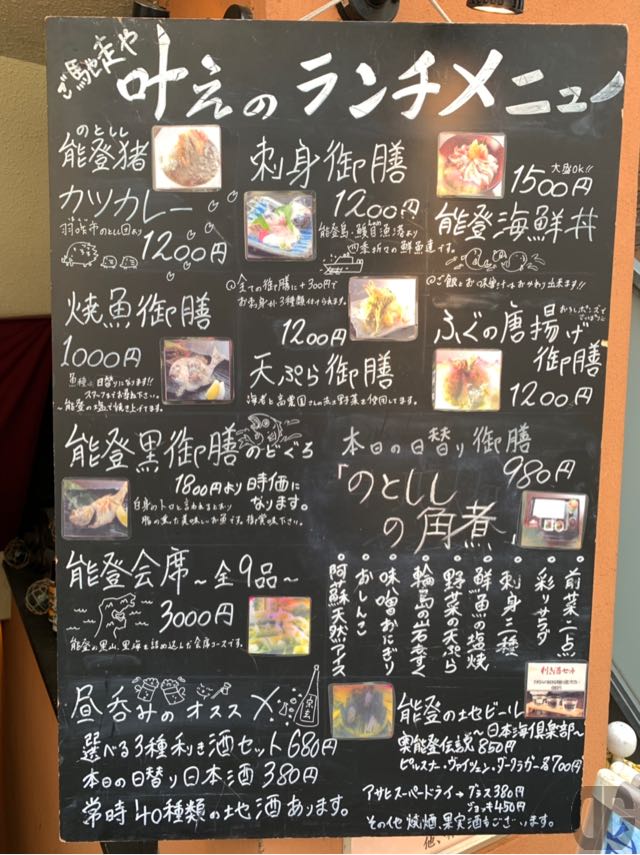 ご馳走や
叶えの ランチメニュー
のとしし
能登猪
カツカレー
羽咋市のとしし団より
1200円
刺身御膳
1200円
能登島・鰀目漁港より
四季折々の鮮魚達です。
大盛OK!!
1500円
能登海鮮丼
@ご飯とお味噌汁はおかわり出来ます!!
焼魚御膳
1000円
魚種は日替りになります!!
スタッフまでお尋ね下さい。
~能登の塩で焼き上げてます。
@全ての御膳に+300円で
お造り3種類付けられます。
1200円
天ぷら御膳
海老と高農園さんの赤土野菜を使用してます。
おろしポンズで
ございます
ふぐの唐揚げ
御膳
1200円
能登黒御膳 のどぐろ
1800円より時価に
なります。
白身のトロと言われるとおり
脂の乗った美味しいお魚です。御賞味下さい。
本日の日替り御膳
980円
「のとしし
の角煮」
能登会席~全9品~
3000円
能登の里山、里海を詰め込んだ会席コースです。
・前菜二点
・彩りサラダ
・刺身二種
・鮮魚の塩焼
・野菜の天ぷら
・輪島の岩もずく
・味噌おにぎり
・おしんこ
・阿蘇天然アイス
昼呑みのオススメ
選べる3種利き酒セット680円
本日の日替り日本酒380円
常時40種類の地酒あります。
利き酒セット
能登の地ビール
~日本海倶楽部~
奥能登伝説850円
ピルスナー・ヴァイツェン・ダークラガー各700円
アサヒスーパードライ→グラス380円
ジョッキ450円
その他焼酎、果実酒もございます。